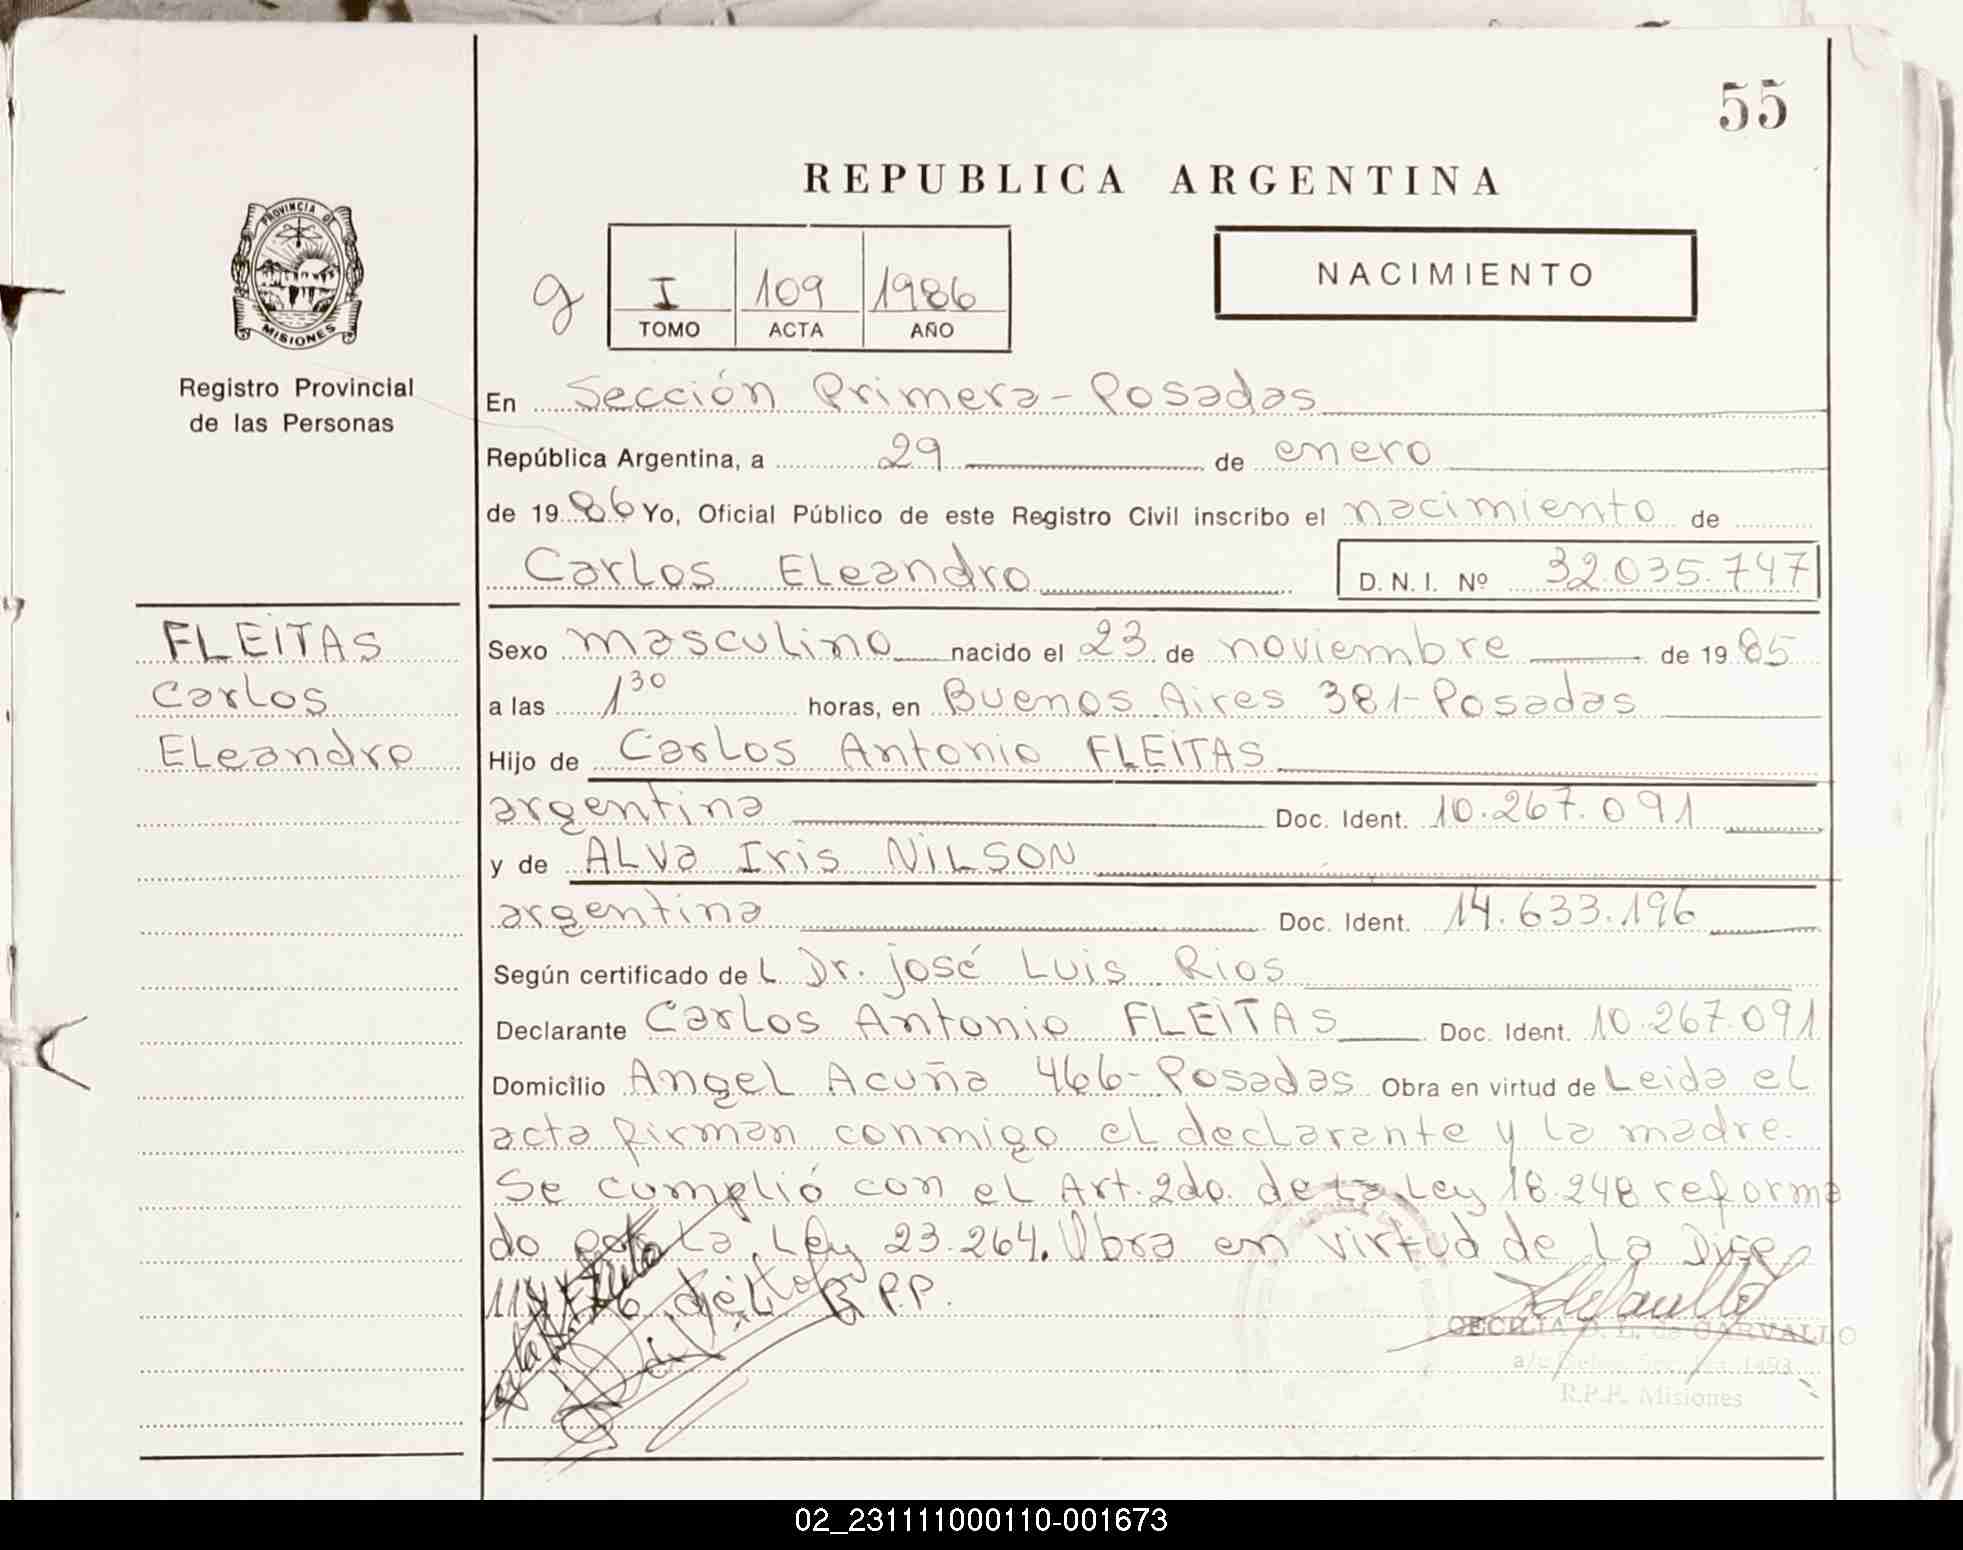 55
REPUBLICA ARGENTINA
PROVINCIA DE
MISIONES
Registro Provincial
de las Personas
g
I 109 1986
TOMO ACTA AÑO
NACIMIENTO
En Sección Primera - Posadas
República Argentina, a 29 de enero
de 1986 Yo, Oficial Público de este Registro Civil inscribo el nacimiento de
Carlos Eleandro D. N. I. Nº 32.035.747
FLEITAS
Carlos
Eleandro
Sexo masculino nacido el 23 de noviembre de 1985
a las 1 30 horas, en Buenos Aires 381 - Posadas
Hijo de Carlos Antonio FLEITAS
argentina Doc. Ident. 10.267.091
y de ALVa Iris NILSON
argentina Doc. Ident. 14.633.196
Según certificado del Dr. José Luis Rios
Declarante Carlos Antonio FLEITAS Doc. Ident. 10.267.091
Domicilio Angel Acuña 466 - Posadas Obra en virtud de Leida el
acta firman conmigo el declarante y la madre.
Se cumplió con el Art. 2do. de la Ley 18.248 reforma
do por la Ley 23.264. Obra en virtud de la Disp
del R.P.P.
CECILIA de CARVALLO
R.P.P. Misiones
02_231111000110-001673